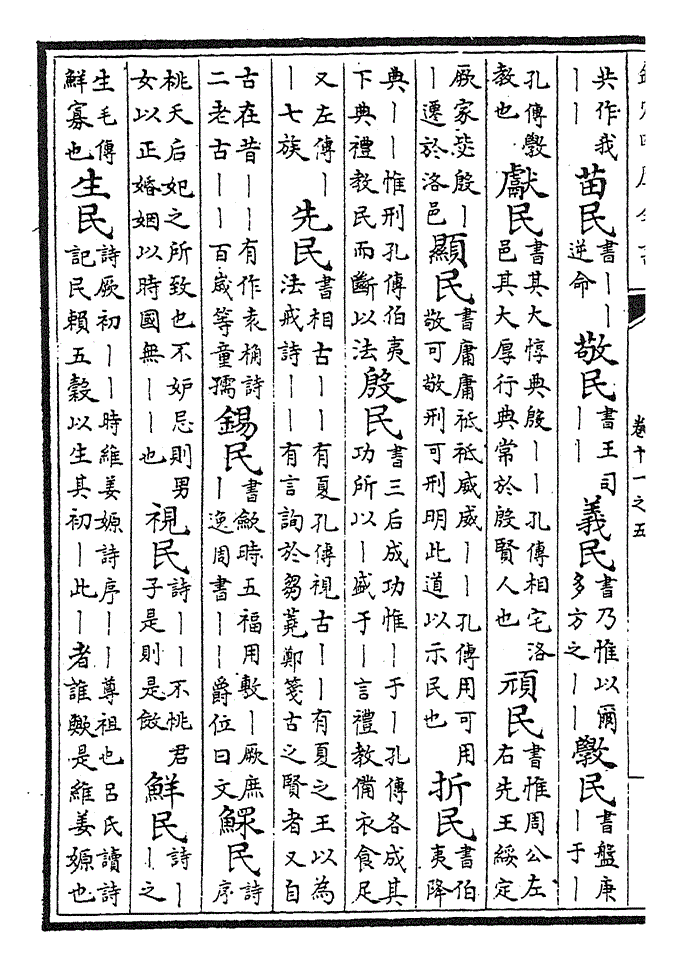 卷十一之五
共作我丨丨 苗民 書丨丨逆命 敬民 書王司丨丨 義民 書乃惟以爾多方之丨丨 斆民 書盤庚丨于丨
孔傳斆教也 獻民 書其大惇典殷丨丨孔傳相宅洛邑其大厚行典常於殷賢人也 頑民 書惟周公左右先王綏定
厥家毖殷丨丨遷於洛邑 顯民 書庸庸祗祗威威丨丨孔傳用可用敬可敬刑可刑明此道以示民也 折民 書伯夷降
典丨丨惟刑孔傳伯夷下典禮教民而斷以法 殷民 書三后成功惟丨于丨孔傳各成其功所以丨盛于丨言禮教備衣食足
又左傳丨丨七族 先民 書相古丨丨有夏孔傳視古丨丨有夏之王以為法戒詩丨丨有言詢於芻蕘鄭箋古之賢者又自
古在昔丨丨有作袁桷詩二老古丨丨百歲等童孺 錫民 書歛時五福用敷丨厥庶丨逸周書丨丨爵位曰文 鰥民 詩序
桃夭后妃之所致也不妒忌則男女以正婚姻以時國無丨丨也 視民 詩丨丨不恌君子是則是傚 鮮民 詩丨丨之
生毛傳鮮寡也 生民 詩厥初丨丨時維姜嫄詩序丨丨尊祖也呂氏讀詩記民賴五穀以生其初丨此丨者誰歟是維姜嫄也